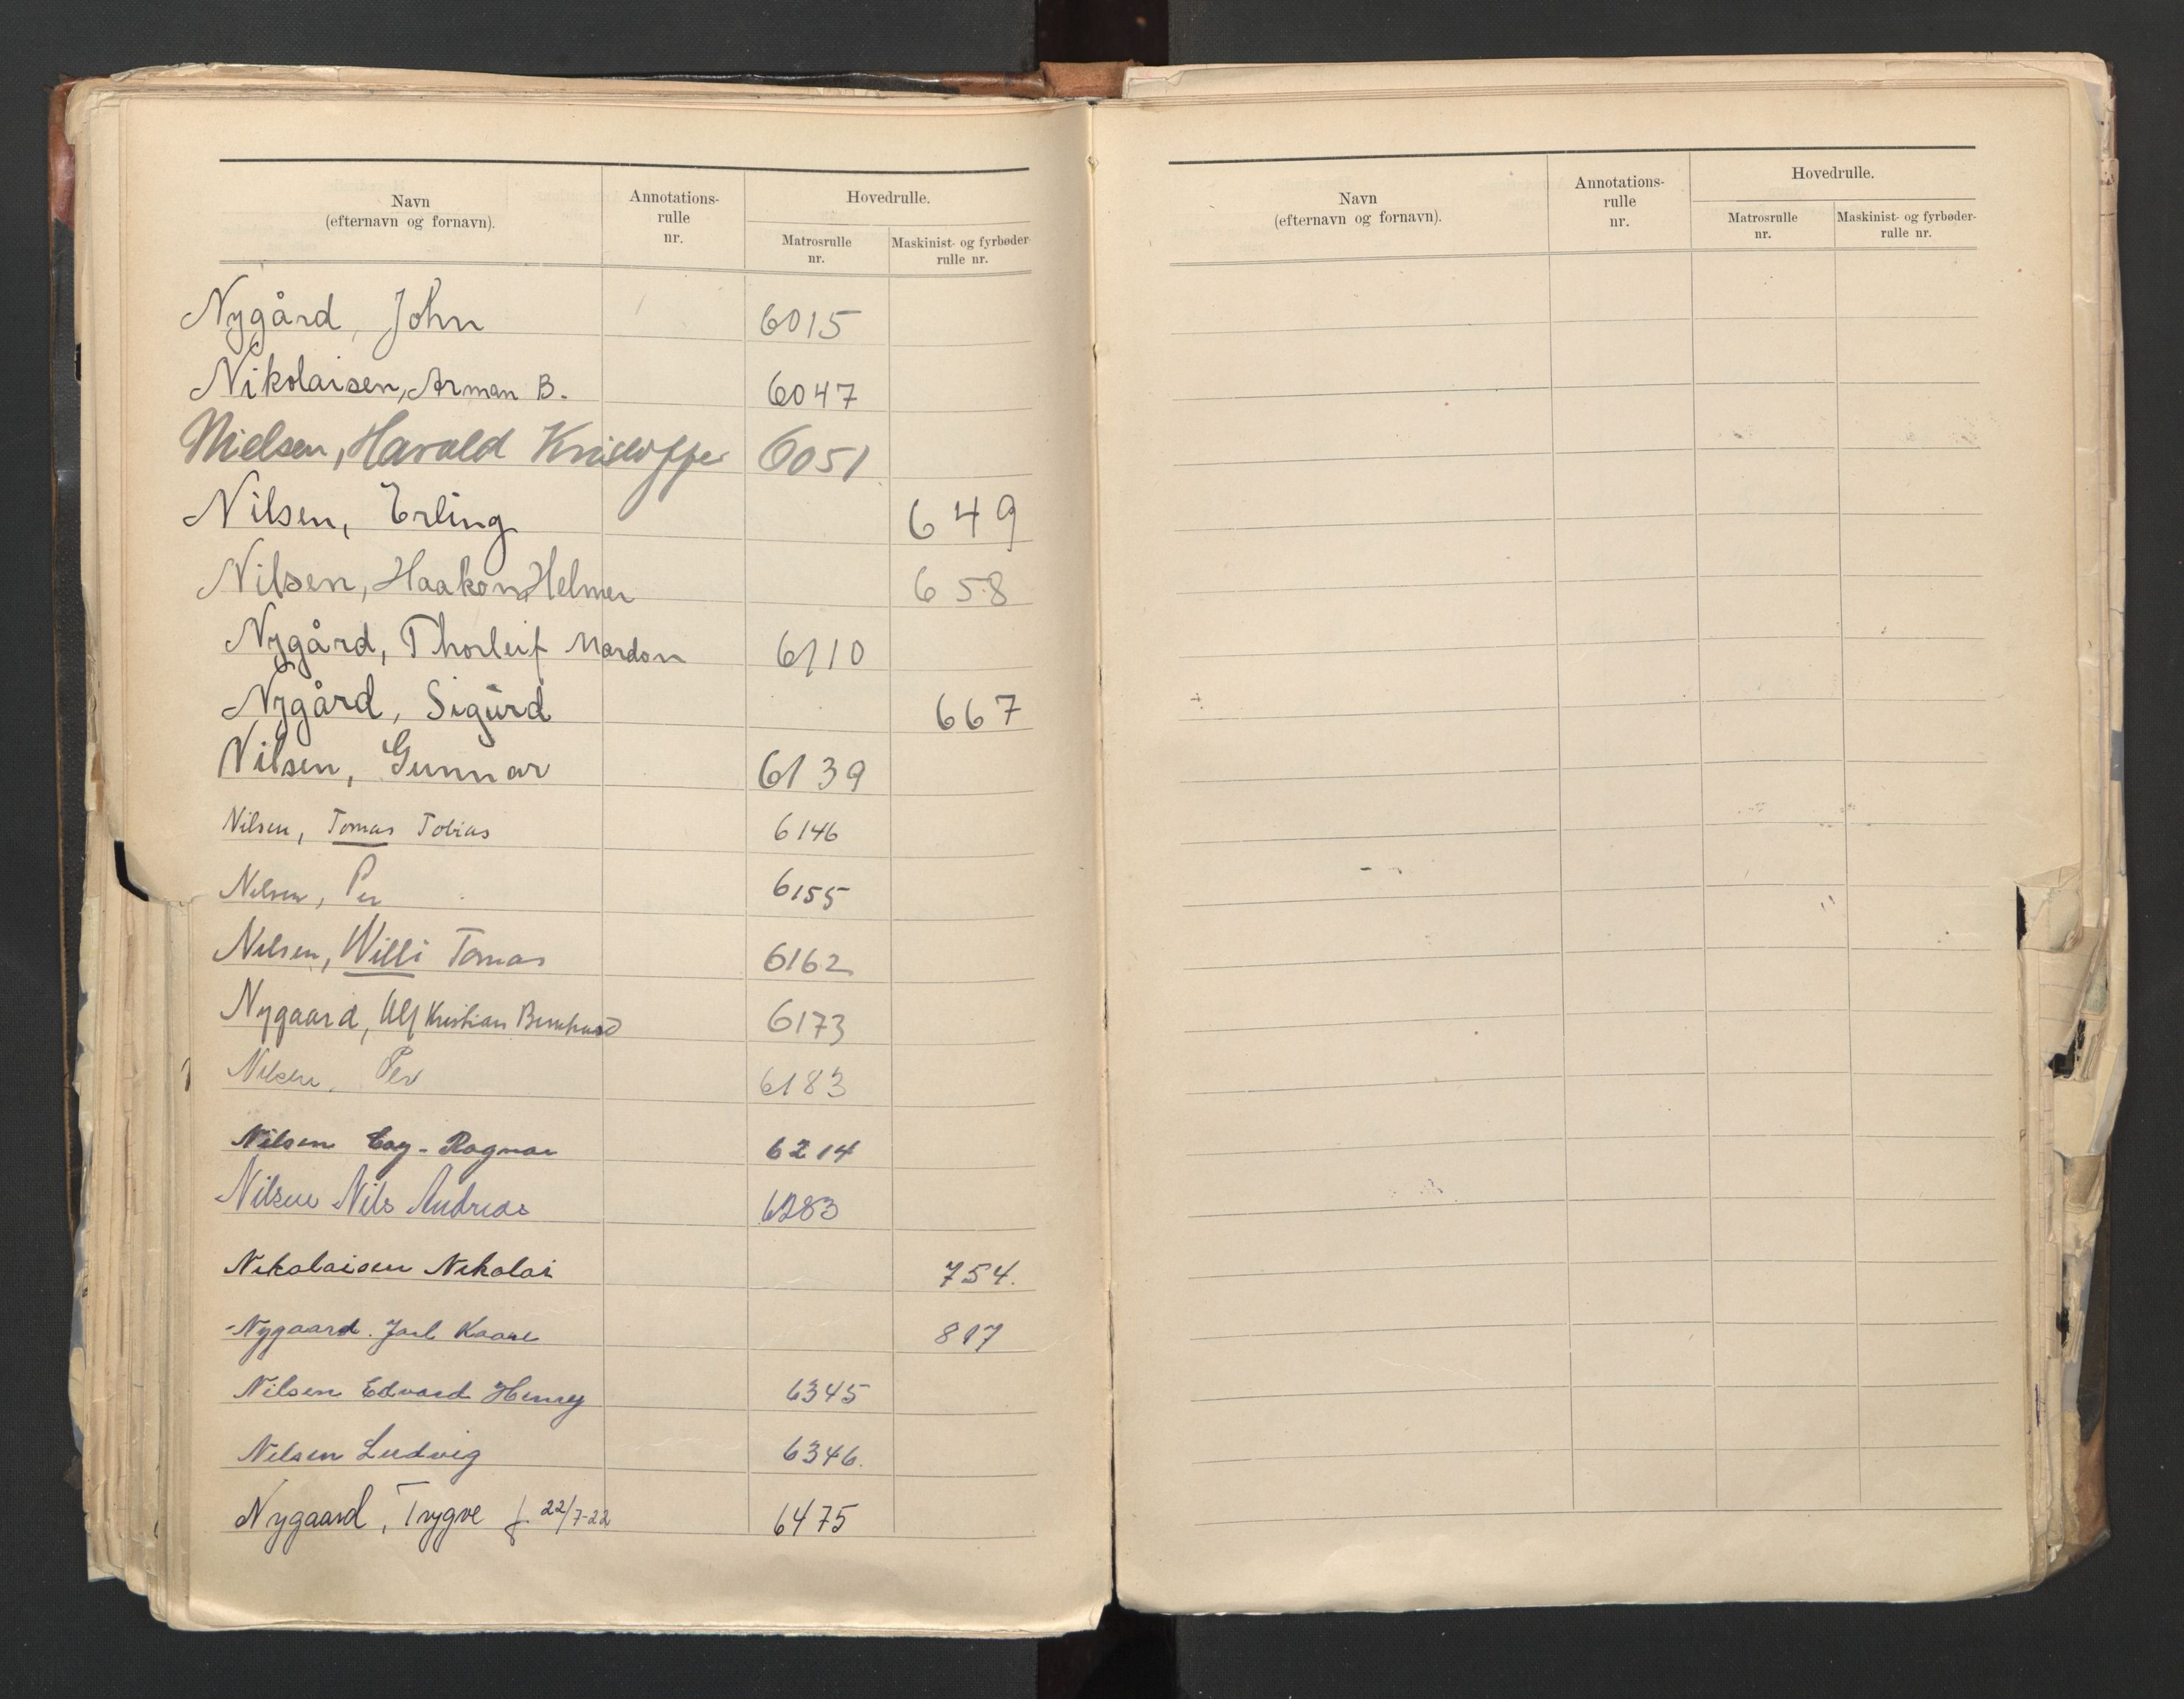 Navn
(efternavn og fornavn).
Annotations-
rulle
nr.
Hovedrulle.
Matrosrulle
nr.
Maskinist- og fyrbøder-
rulle nr.
Nygård, John 6015
Nikolaisen, Arman B. 6047
Nielsen, Harald Kristoffer 6051
Nilsen, Erling 649
Nilsen, Haakon Helmer 658
Nygård, Thorleif Mardon 6110
Nygård, Sigurd 667
Nilsen, Gunnar 6139
Nilsen, Tomas Tobias 6146
Nilsen, Per 6155
Nilsen, Willi Tomas 6162
Nygaard, Ulf Kristian Bernhard 6173
Nilsen, Per 6183
Nilsen Ragnar 6214
Nilsen Nils Andreas 6283
Nikolaisen Nikolai 754.
Nygaard. Jarl Kaare 817
Nilsen Edvard Henry 6345
Nilsen Ludvig 6346.
Nygaard, Trygve f. 22/7-22 6475
Navn
(efternavn og fornavn).
Annotations-
rulle
nr.
Hovedrulle.
Matrosrulle
nr.
Maskinist- og fyrbøder-
rulle nr.